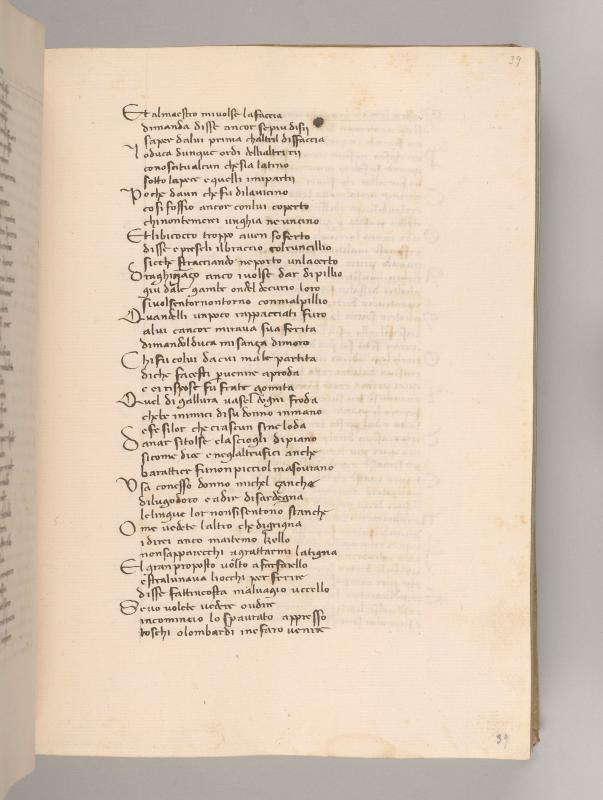 39
Et almaestro mivolse lafaccia
dimanda disse ancor sepiu disii
saper dalui prima chaltri ildisfaccia
Loduca dunque ordi dellialtri rii
conosci tu alcun chesia latino
sotto lapece equelli imiparti
Poche daun chefu dilavicino
cosi fossio ancor conlui coperto
chi nontemerei unghia neuncino
Et libicocco troppo avem soferto
disse epreseli ilbraccio colruncillio
sicche stracciando neporto unlacerto
Draghignazo anco ivolse dar dipillio
giu dale gambe ondel decurio loro
sivolsentornontorno conmalpillio
Quandelli unpoco rappacciati furo
alui cancor mirava sua ferita
dimandolduca mi sanza dimoro
Chi fu colui dacui mala partita
di che facesti pvenire aproda
e ei rispose fu frate gomita
Quel di gallura vasel dogni froda
chebe inimici disu donno inmano
e fe silor che ciascun sine loda
Danar sitolse elasciogli dipiano
sicome dice e neglaltrufici anche
barattier fu non picciol ma sovrano
Usa conesso donno michel çanche
dilugodoro e adir disardegna
lelingue lor nonsisentono stanche
O me vedete laltro che digrigna
i direi anco maitemo kello
nonsapparecchi agrattarmi latigna
El gran proposto volto afarfarello
estralunava liocchi per ferire
disse fattincosta malvagio uccello
Se vo volete vedere oudire
incomincio lo spaurato appresso
toschi olombardi inefaro venire
39